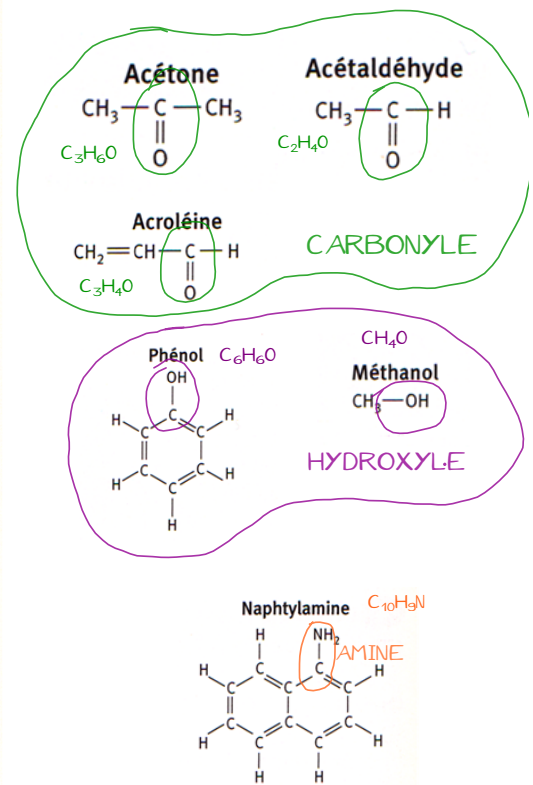 Acétone
CH₃—C—CH₃
||
O
C₃H₆O
Acétaldéhyde
CH₃—C—H
||
O
C₂H₄O
Acroléine
CH₂=CH—C—H
||
O
C₃H₄O
CARBONYLE
Phénol
C₆H₆O
OH
C
H C C H
H C C H
C
H
CH₄O
Méthanol
CH₃—OH
HYDROXYL.E
Naphtylamine
C₁₀H₉N
H NH₂
AMINE
H C C H
C C C
C C C
H C C H
H H